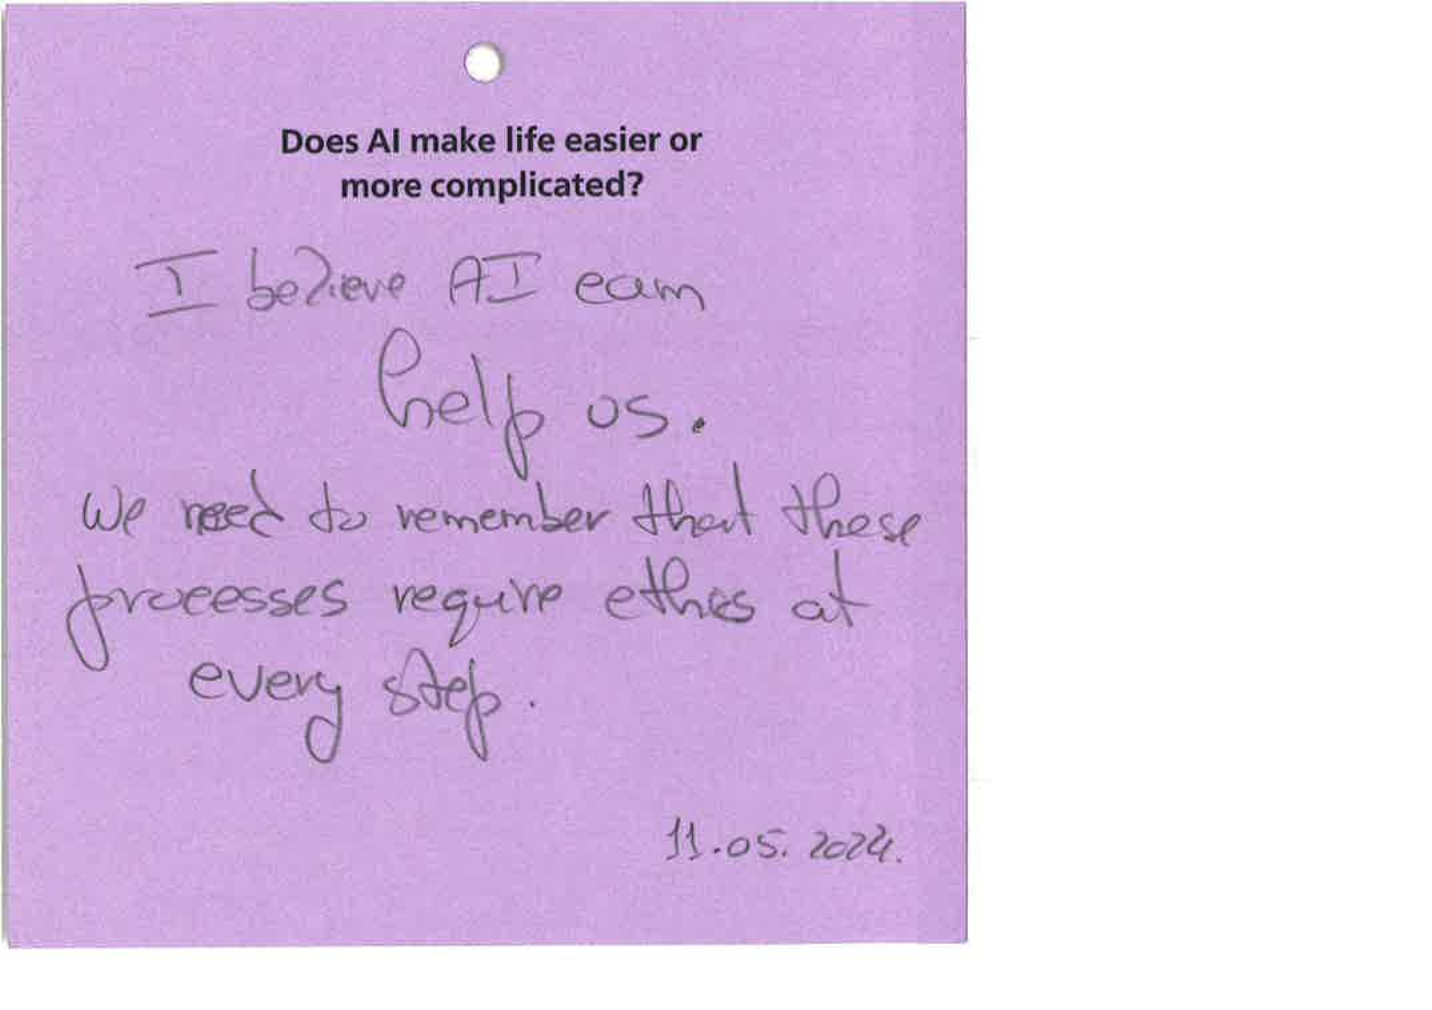 Does AI make life easier or
more complicated?
I believe AI can
help us.
We need to remember that these
processes require ethics at
every step.
11.05.2024.